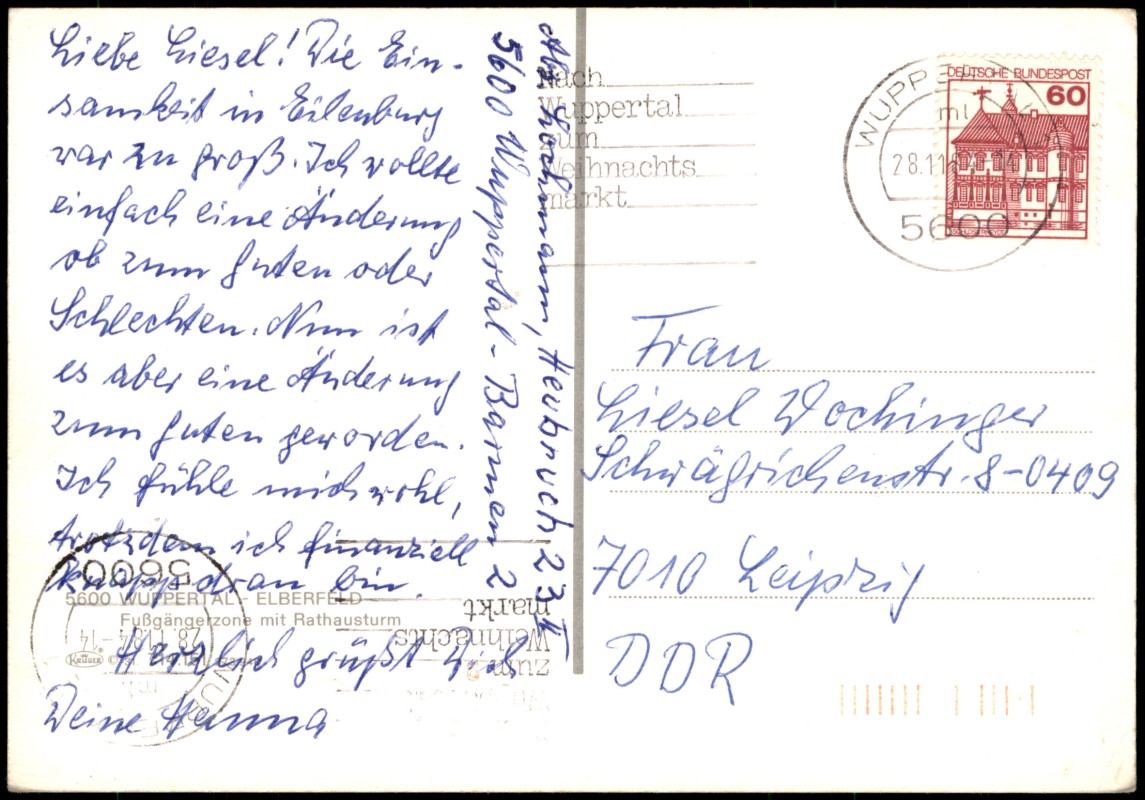 Liebe Liesel! Die Ein-
samkeit in Eilenburg
war zu groß. Ich wollte
einfach eine Änderung
ob zum guten oder
Schlechten. Nun ist
es aber eine Änderung
zum guten geworden.
Ich fühle mich wohl,
trotzdem ich finanziell
knapp dran bin.
Herzlich grüßt Dich
Deine Hanna
5600 WUPPERTAL - ELBERFELD
Fußgängerzone mit Rathausturm
KRÜGER
Abs. Hochmann, Herbruch 23 II
5600 Wuppertal-Barmen 2
Nach
Wuppertal
zum
Weihnachts
markt
DEUTSCHE BUNDESPOST
60
WUPPERTAL
28.11.84-14
5600
Frau
Liesel Wochinger
Schwägrichenstr. 8-0409
7010 Leipzig
DDR
5600
28.11.84-14
WUPPE
zum
Weihnachts
markt